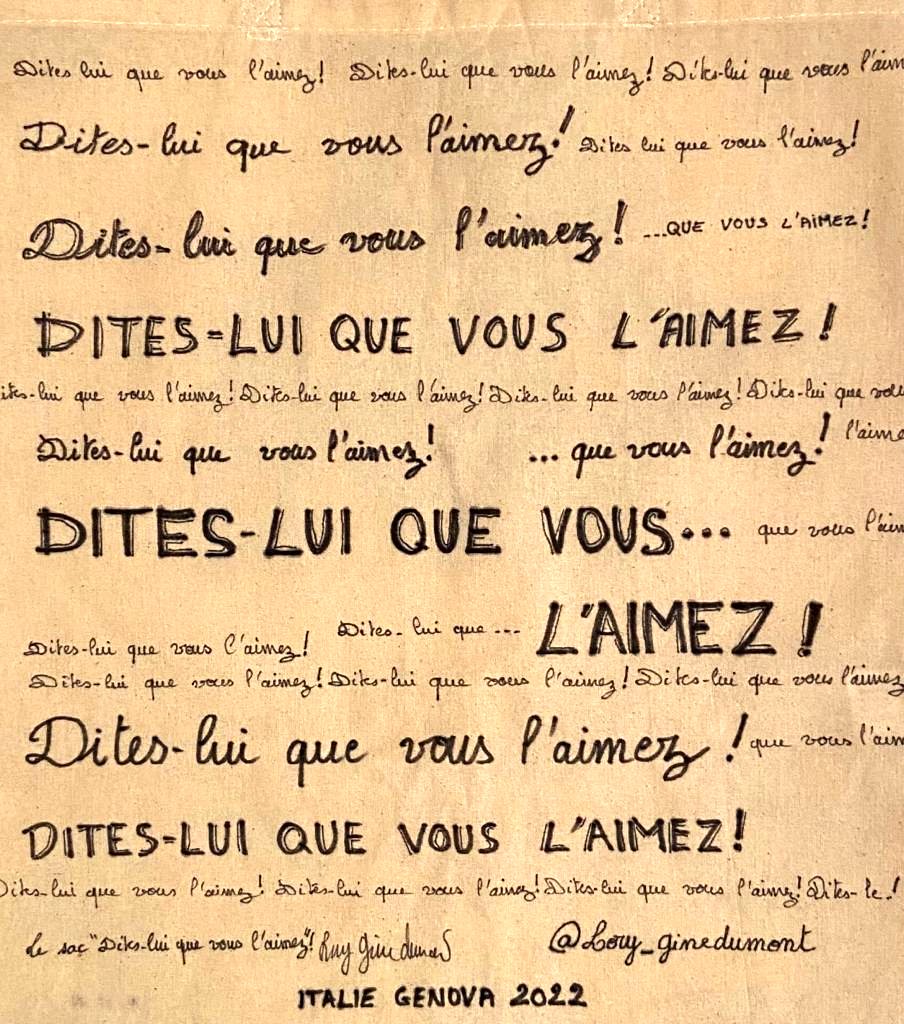 Dites lui que vous l'aimez! Dites-lui que vous l'aimez! Dites-lui que vous l'aim
Dites-lui que vous l'aimez! Dites lui que vous l'aimez!
Dites-lui que vous l'aimez! ...QUE VOUS L'AIMEZ!
DITES-LUI QUE VOUS L'AIMEZ!
ites-lui que vous l'aimez! Dites-lui que vous l'aimez! Dites-lui que vous l'aimez! Dites-lui que vou
Dites-lui que vous l'aimez! ... que vous l'aimez! l'aime
DITES-LUI QUE VOUS... que vous l'aim
Dites-lui que vous l'aimez! Dites-lui que... L'AIMEZ!
Dites-lui que vous l'aimez! Dites-lui que vous l'aimez! Dites-lui que vous l'aimez
Dites-lui que vous l'aimez! que vous l'aim
DITES-LUI QUE VOUS L'AIMEZ!
Dites-lui que vous l'aimez! Dites-lui que vous l'aimez! Dites-lui que vous l'aimez! Dites-le!
Le sac "Dites-lui que vous l'aimez"! @Lory_ginedumont
ITALIE GENOVA 2022